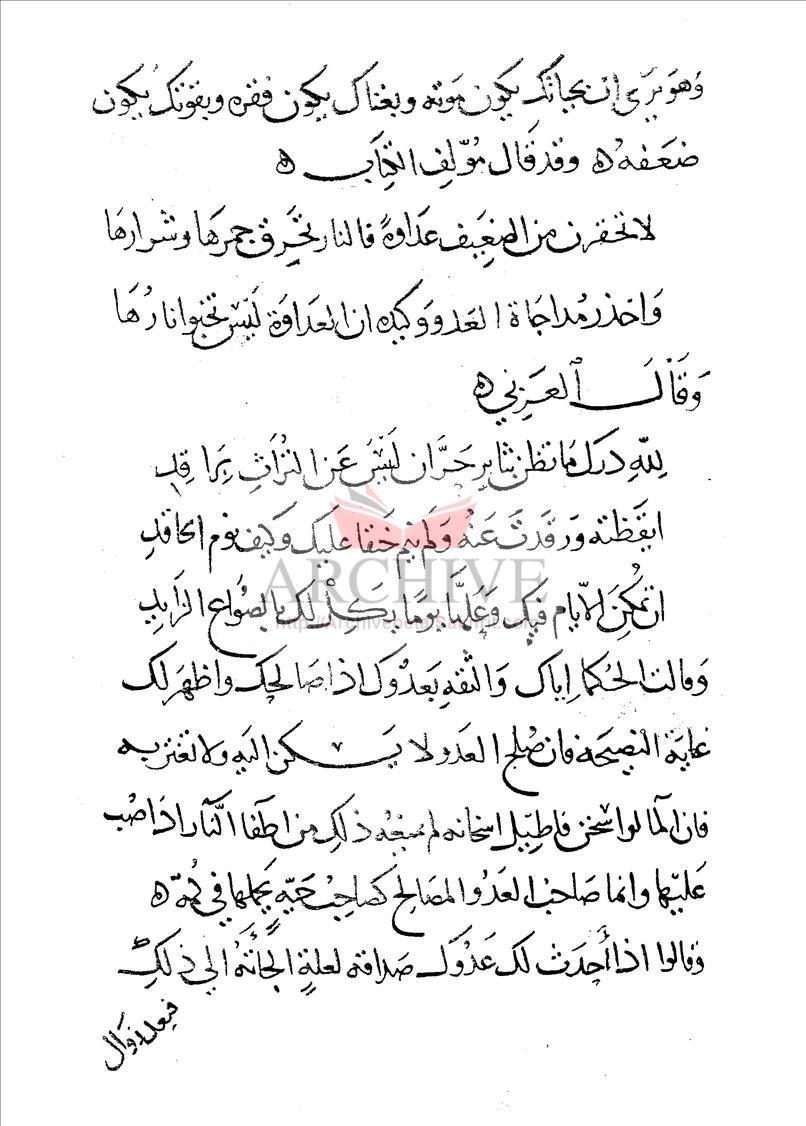 وهو يرى ان بحياتك يكون موته وبغناك يكون فقره وبقوتك يكون
ضعفه ه وقد قال مؤلف الكتاب ه
لا تحقرن من الضعيف عداوة فالنار تحرق جمرها وشرارها
واحذر مداجاة العدو وكيده ان العداوة ليس تخبوا نارها
وقال العزني ه
لله درك ما تظن بثاير حران ليس عن التراث براقد
ايقظته ورقدت عنه ولم ينم حنقا عليك وكيف نوم الحاقد
ان تمكن الايام فيك وعلها يوما يكل لك بالصواع الزايد
ARCHIVE
وقالت الحكما اياك والثقه بعدوك اذا صالحك واظهر لك
غاية النصيحة فان صلح العدو لا يسكن اليه ولا تغتر به
فان الما لو اسخن فاطيل اسخانه لم يمنعه ذلك من اطفا النار اذا صب
عليها وانما صاحب العدو المصالح كصاحب حية يحملها في كمه ه
وقالوا اذا احدث لك عدوك صداقة لعلة الجأته الي ذلك